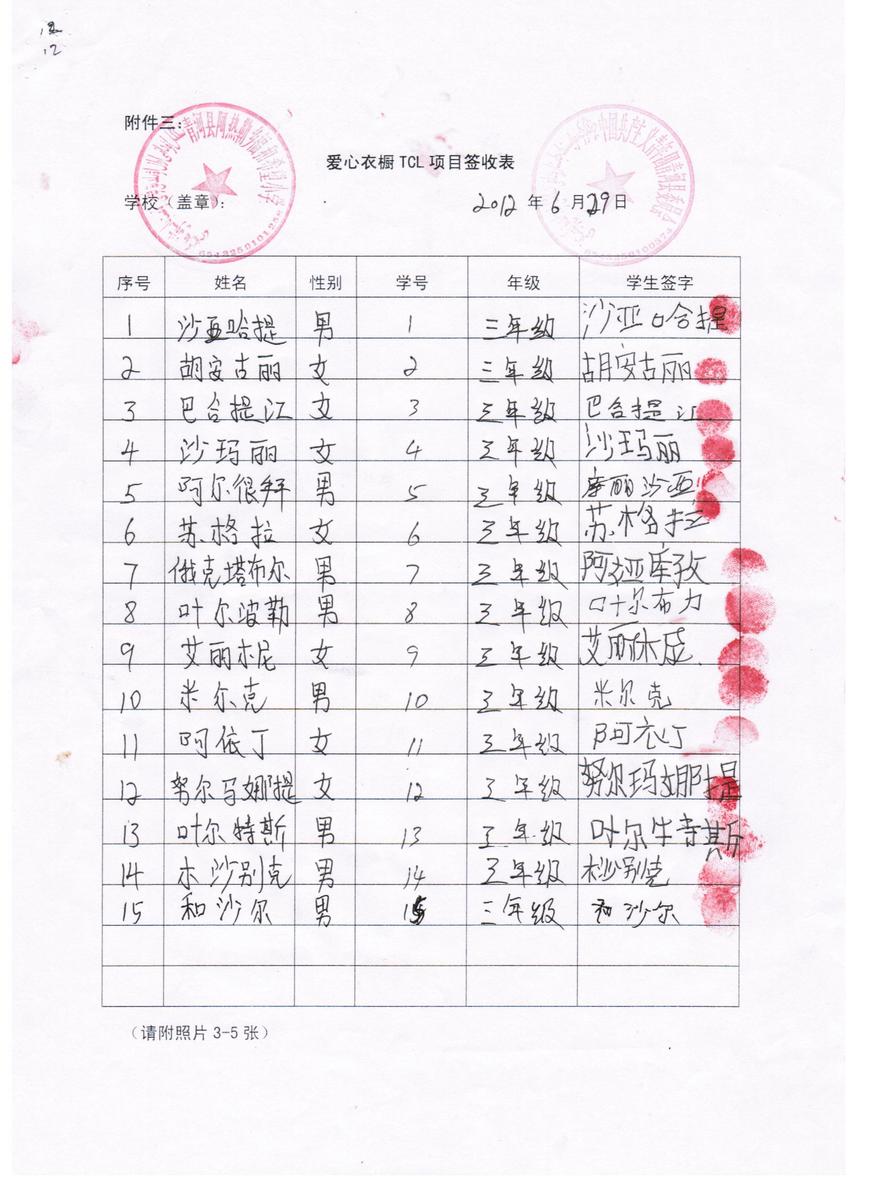 12
附件三:
爱心衣橱 TCL 项目签收表
学校（盖章）: 2012 年 6 月 29 日
序号 姓名 性别 学号 年级 学生签字
1 沙亚哈提 男 1 三年级 沙亚哈提
2 胡安古丽 女 2 三年级 胡安古丽
3 巴合提江 女 3 三年级 巴合提江
4 沙玛丽 女 4 三年级 沙玛丽
5 阿尔很拜 男 5 三年级
6 苏格拉 女 6 三年级 苏格拉
7 俄克塔布尔 男 7 三年级
8 叶尔波勒 男 8 三年级 叶尔布力
9 艾丽木尼 女 9 三年级
10 米尔克 男 10 三年级 米尔克
11 阿依丁 女 11 三年级 阿衣丁
12 努尔马娜提 女 12 三年级 努尔玛娜提
13 叶尔特斯 男 13 三年级 叶尔特斯
14 木沙别克 男 14 三年级 木沙别克
15 和沙尔 男 15 三年级 和沙尔
（请附照片 3-5 张）